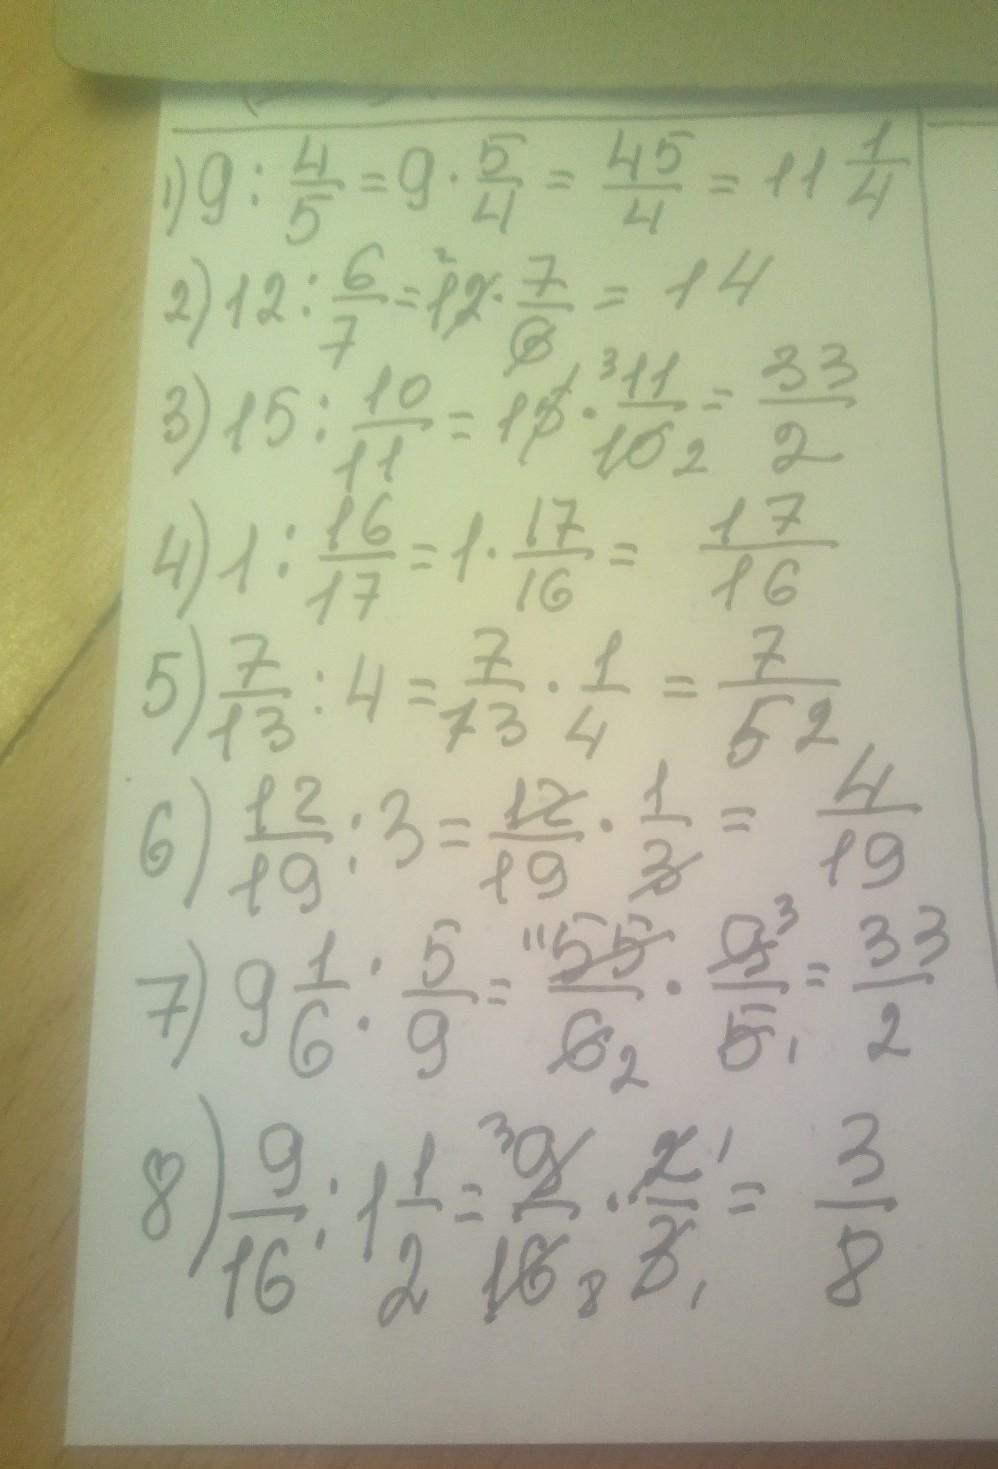 1) 9 : 4/5 = 9 · 5/4 = 45/4 = 11 1/4
2) 12 : 6/7 = 12 2 · 7/6 = 14
3) 15 : 10/11 = 15 · 3 11/10 2 = 33/2
4) 1 : 16/17 = 1 · 17/16 = 17/16
5) 7/13 : 4 = 7/13 · 1/4 = 7/52
6) 12/19 : 3 = 12/19 · 1/3 = 4/19
7) 9 1/6 : 5/9 = 11 55/6 2 · 9 3/5 1 = 33/2
8) 9/16 : 1 1/2 = 3 9/16 8 · 2 1/3 1 = 3/8